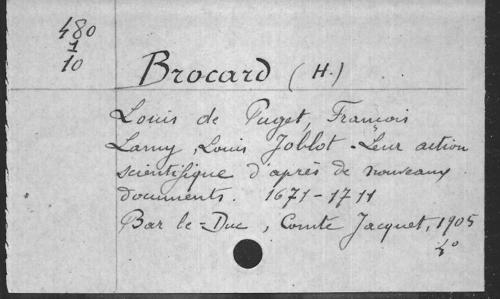 480
1
10
Brocard (H.)
Louis de Puget, François
Lamy, Louis Joblot. Leur action
scientifique d'après de nouveaux
documents. 1671-1711
Bar le-Duc, Comte Jacquet, 1905
4°